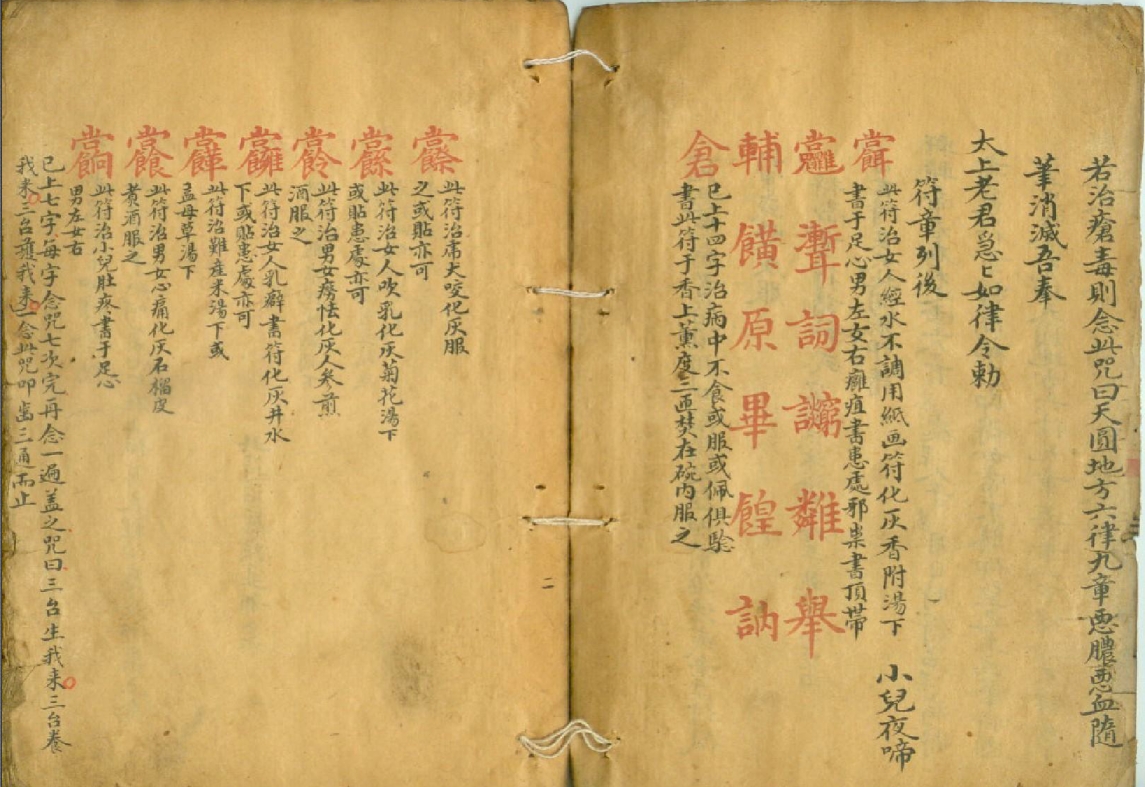 若治瘡毒則念此咒曰天圓地方六律九章惡膿惡血隨
筆消滅吾奉
太上老君急上如律令勅
符章列後
此符治女人經水不調用紙画符化灰香附湯下 小兒夜啼
書于足心男左女右癰疽書患處邪祟書頂帶
聻詞
舉
輔
原畢
訥
倉
已上十四字治病中不食或服或佩俱驗
書此符于香上薰度三匝焚在碗內服之
此符治席犬咬化灰服
之或貼亦可
此符治女人吹乳化灰菊花湯下
或貼患處亦可
此符治男女癆怯化灰人參煎
酒服之
此符治女人乳癖書符化灰井水
下或貼患處亦可
此符治難産米湯下或
益母草湯下
此符治男女心痛化灰石榴皮
煮酒服之
此符治小兒肚疼書于足心
男左女右
已上七字每字念咒七次完再念一遍盖之咒曰三台生我来三台養
我来三台護我来一念此咒叩齒三通而止
二